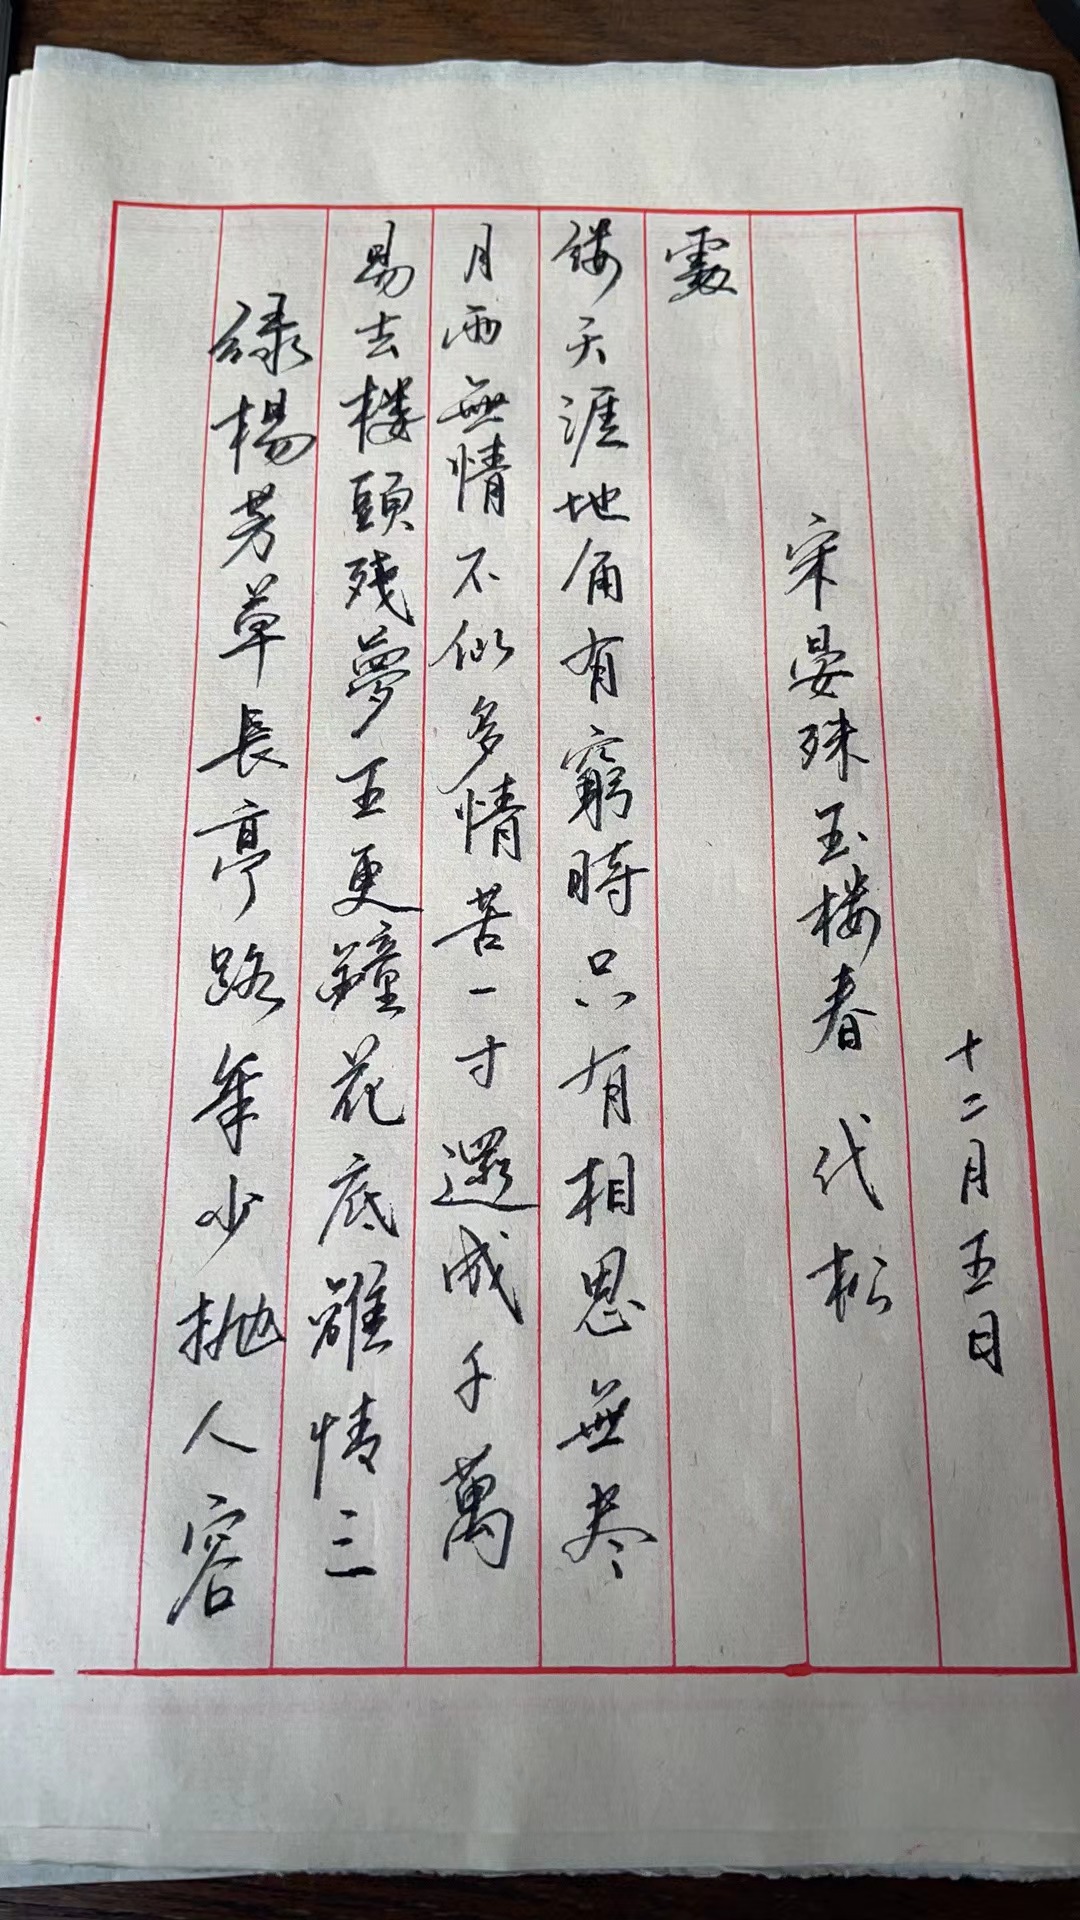 緑楊芳草長亭路年少抛人容
易去楼頭残夢五更鐘花底離情三
月雨無情不似多情苦一寸還成千萬
缕天涯地角有窮時只有相思無尽
處
宋晏殊玉楼春 代松
十二月五日